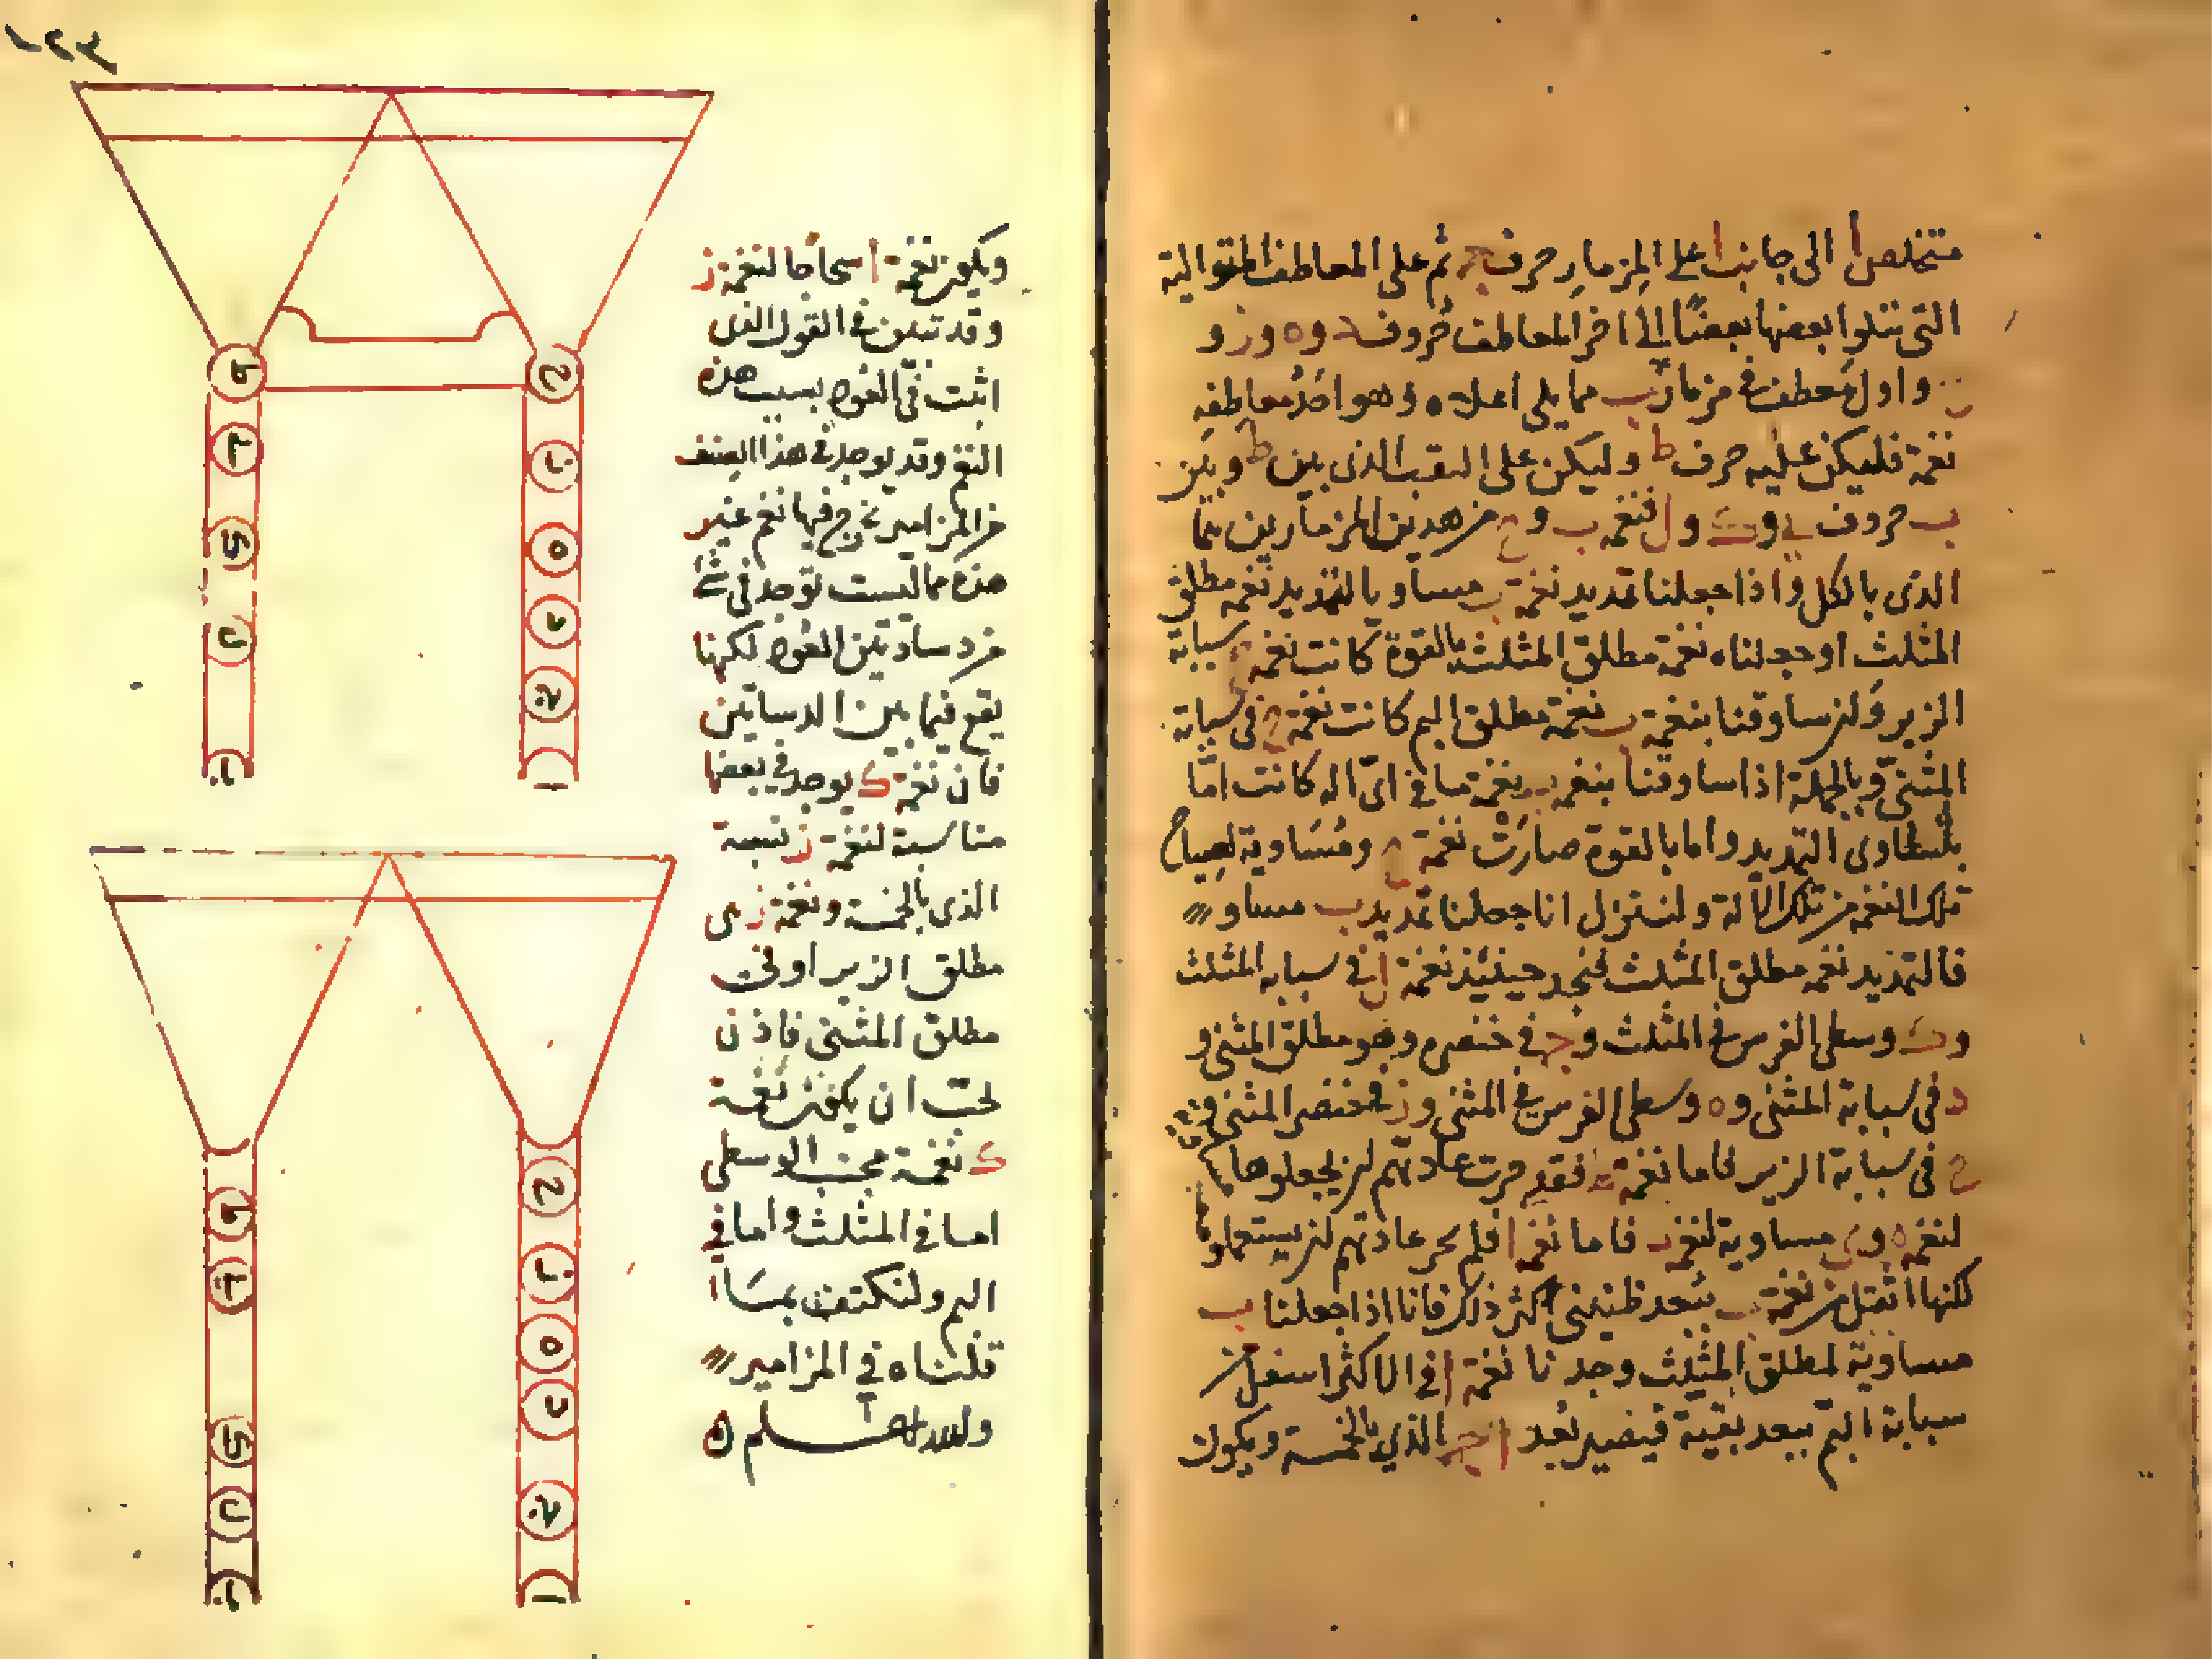 متخلصا الى جانب اعلى المزمار حرف ج ثم على المعاطف المتوالية
التى يتلوا بعضها بعضا الى اخر المعاطف حروف د و ه و ز و
ح واول معطف فى مزمار ب مما يلى اعلاه وهو احد معاطفه
نغمة فليكن عليه حرف ط وليكن على الثقب الذى بين ط وبين
ب حروف ي و ك و ل فنغمه ب و ح من هذين المزمارين هما
الذى بالكل واذا جعلنا تمديد نغمة ب مساويا لتمديد نغمه مطلق
المثلث او جعلناه نغمة مطلق المثلث بالقوة كانت نغمة ح سبابة
الزير ولنر ساوقنا بنغمة ب نغمة مطلق البم كانت نغمة ح فى سبابة
المثنى وبالجملة اذا ساوقنا بنغمه ب نغمة ما فى اى اله كانت اما
بتساوى التمديد واما بالقوة صارت نغمة ح ومساوية لصياح
تلك النغمه من تلك الالة ولننزل انا جعلنا تمديد ب مساو
فالتمديد نغمه مطلق المثلث فنجد حينئذ نغمة ل فى سبابه المثلث
و ك وسطى الفرس فى المثلث و ج فى خنصره وهو مطلق المثنى و
د فى سبابة المثنى و ه وسطى الفرس فى المثنى و ز فى خنصر المثنى
ح فى سبابة الزير فاما نغمة ط فقد جرت عادتهم لنر يجعلوها
لنغمه ه و ى مساوية لنغمه د فاما نغمه ا فلم تجر عادتهم لنر يستعملوها
لكنها اثقل من نغمة ب ببعد طنينى اكثر ذلك فانا اذا جعلنا ب
مساوية لمطلق المثلث وجدنا نغمة ا فى الاكثر اسفل من
سبابة البم ببعد بقية فيصير بعد ا ج الذي بالخمسة ويكون
١٢٣
ويكون نغمة ا سحاجا لنغمة ز
وقد تبين فى القول الذى
اثبت فى العود بسبب هذه
النغم وقد يوجد فى هذا الصنف
من المزامير تخرج فيها نغم غير
هذه مما ليست توجد فى شئ
من دساتين العود لكنها
يقع فيما بين الدساتين
فان نغمة ك يوجد فى بعضها
مناسبة لنغمة ز نسبة
الذى بالخمسة ونغمة ز هى
مطلق الزير او تحت
مطلق المثنى فاذن
يجب ان يكون نغمة
ك نغمة مجنب الوسطى
اما فى المثلث واما في
البم ولنكتف بما
قلناه في المزامير
والله اعلم
ط
ح
ز
ي
ه
د
ل
ج
ب
ا
ح
ط
ز
ه
د
ي
ل
ج
ب
ا